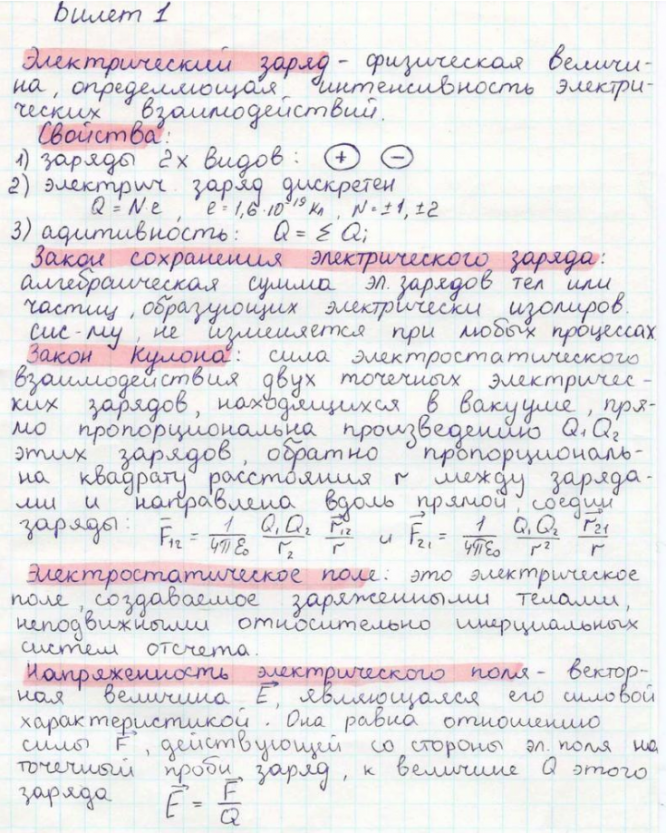 Билет 1
Электрический заряд - физическая величи-
на, определяющая интенсивность электри-
ческих взаимодействий.
Свойства:
1) заряды 2х видов: + −
2) электрич. заряд дискретен
Q = Ne, e = 1,6·10⁻¹⁹ Кл, N = ±1, ±2
3) адитивность: Q = Σ Qᵢ
Закон сохранения электрического заряда:
алгебраическая сумма эл. зарядов тел или
частиц, образующих электрически изолиров.
сис-му, не изменяется при любых процессах
Закон Кулона: сила электростатического
взаимодействия двух точечных электричес-
ких зарядов, находящихся в вакууме, пря-
мо пропорциональна произведению Q₁Q₂
этих зарядов, обратно пропорциональ-
на квадрату расстояния r между заряда-
ми и направлена вдоль прямой, соедин
заряды: F⃗₁₂ = 1/4πε₀ Q₁Q₂/r₂ r⃗₁₂/r и F⃗₂₁ = 1/4πε₀ Q₁Q₂/r² r⃗₂₁/r
Электростатическое поле: это электрическое
поле, создаваемое заряженными телами,
неподвижными относительно инерциальных
систем отсчета.
Напряженность электрического поля - вектор-
ная величина E⃗, являющаяся его силовой
характеристикой. Она равна отношению
силы F⃗, действующей со стороны эл. поля на
точечный пробн заряд, к величине Q этого
заряда E⃗ = F⃗/Q